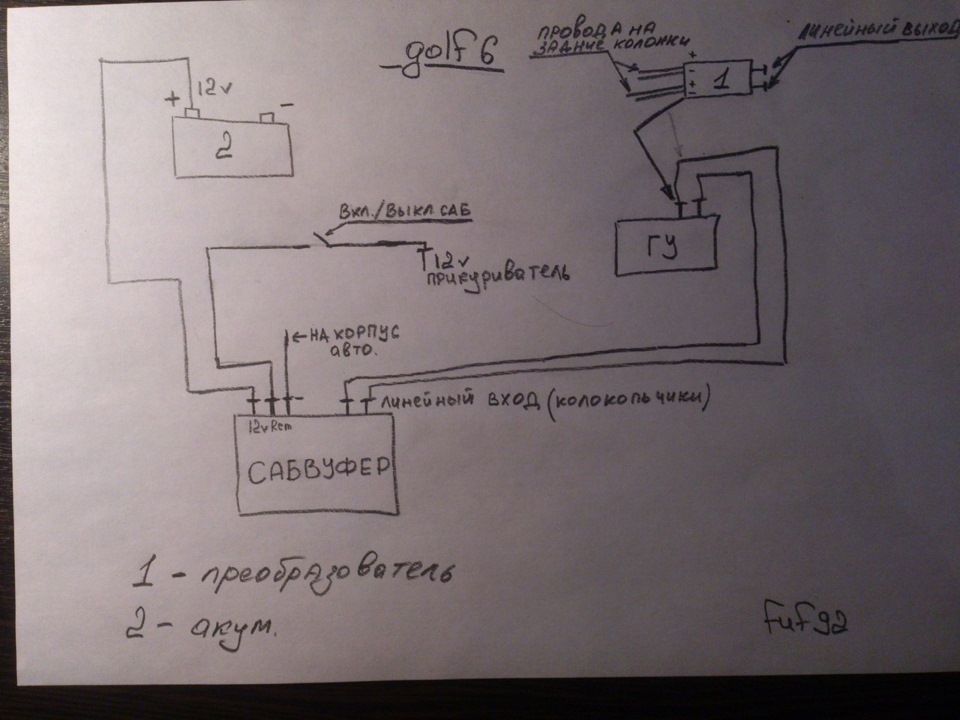 golf 6
ПРОВОДА НА
ЗАДНИЕ КОЛОНКИ
ЛИНЕЙНЫЙ ВЫХОД
+
-
+
-
1
12v
+
-
2
ВКЛ./ВЫКЛ САБ
12v
ПРИКУРИВАТЕЛЬ
ГУ
НА КОРПУС
АВТО.
-
ЛИНЕЙНЫЙ ВХОД (КОЛОКОЛЬЧИКИ)
12v Rem
САБВУФЕР
1 - преобразователь
2 - акум.
fuf92